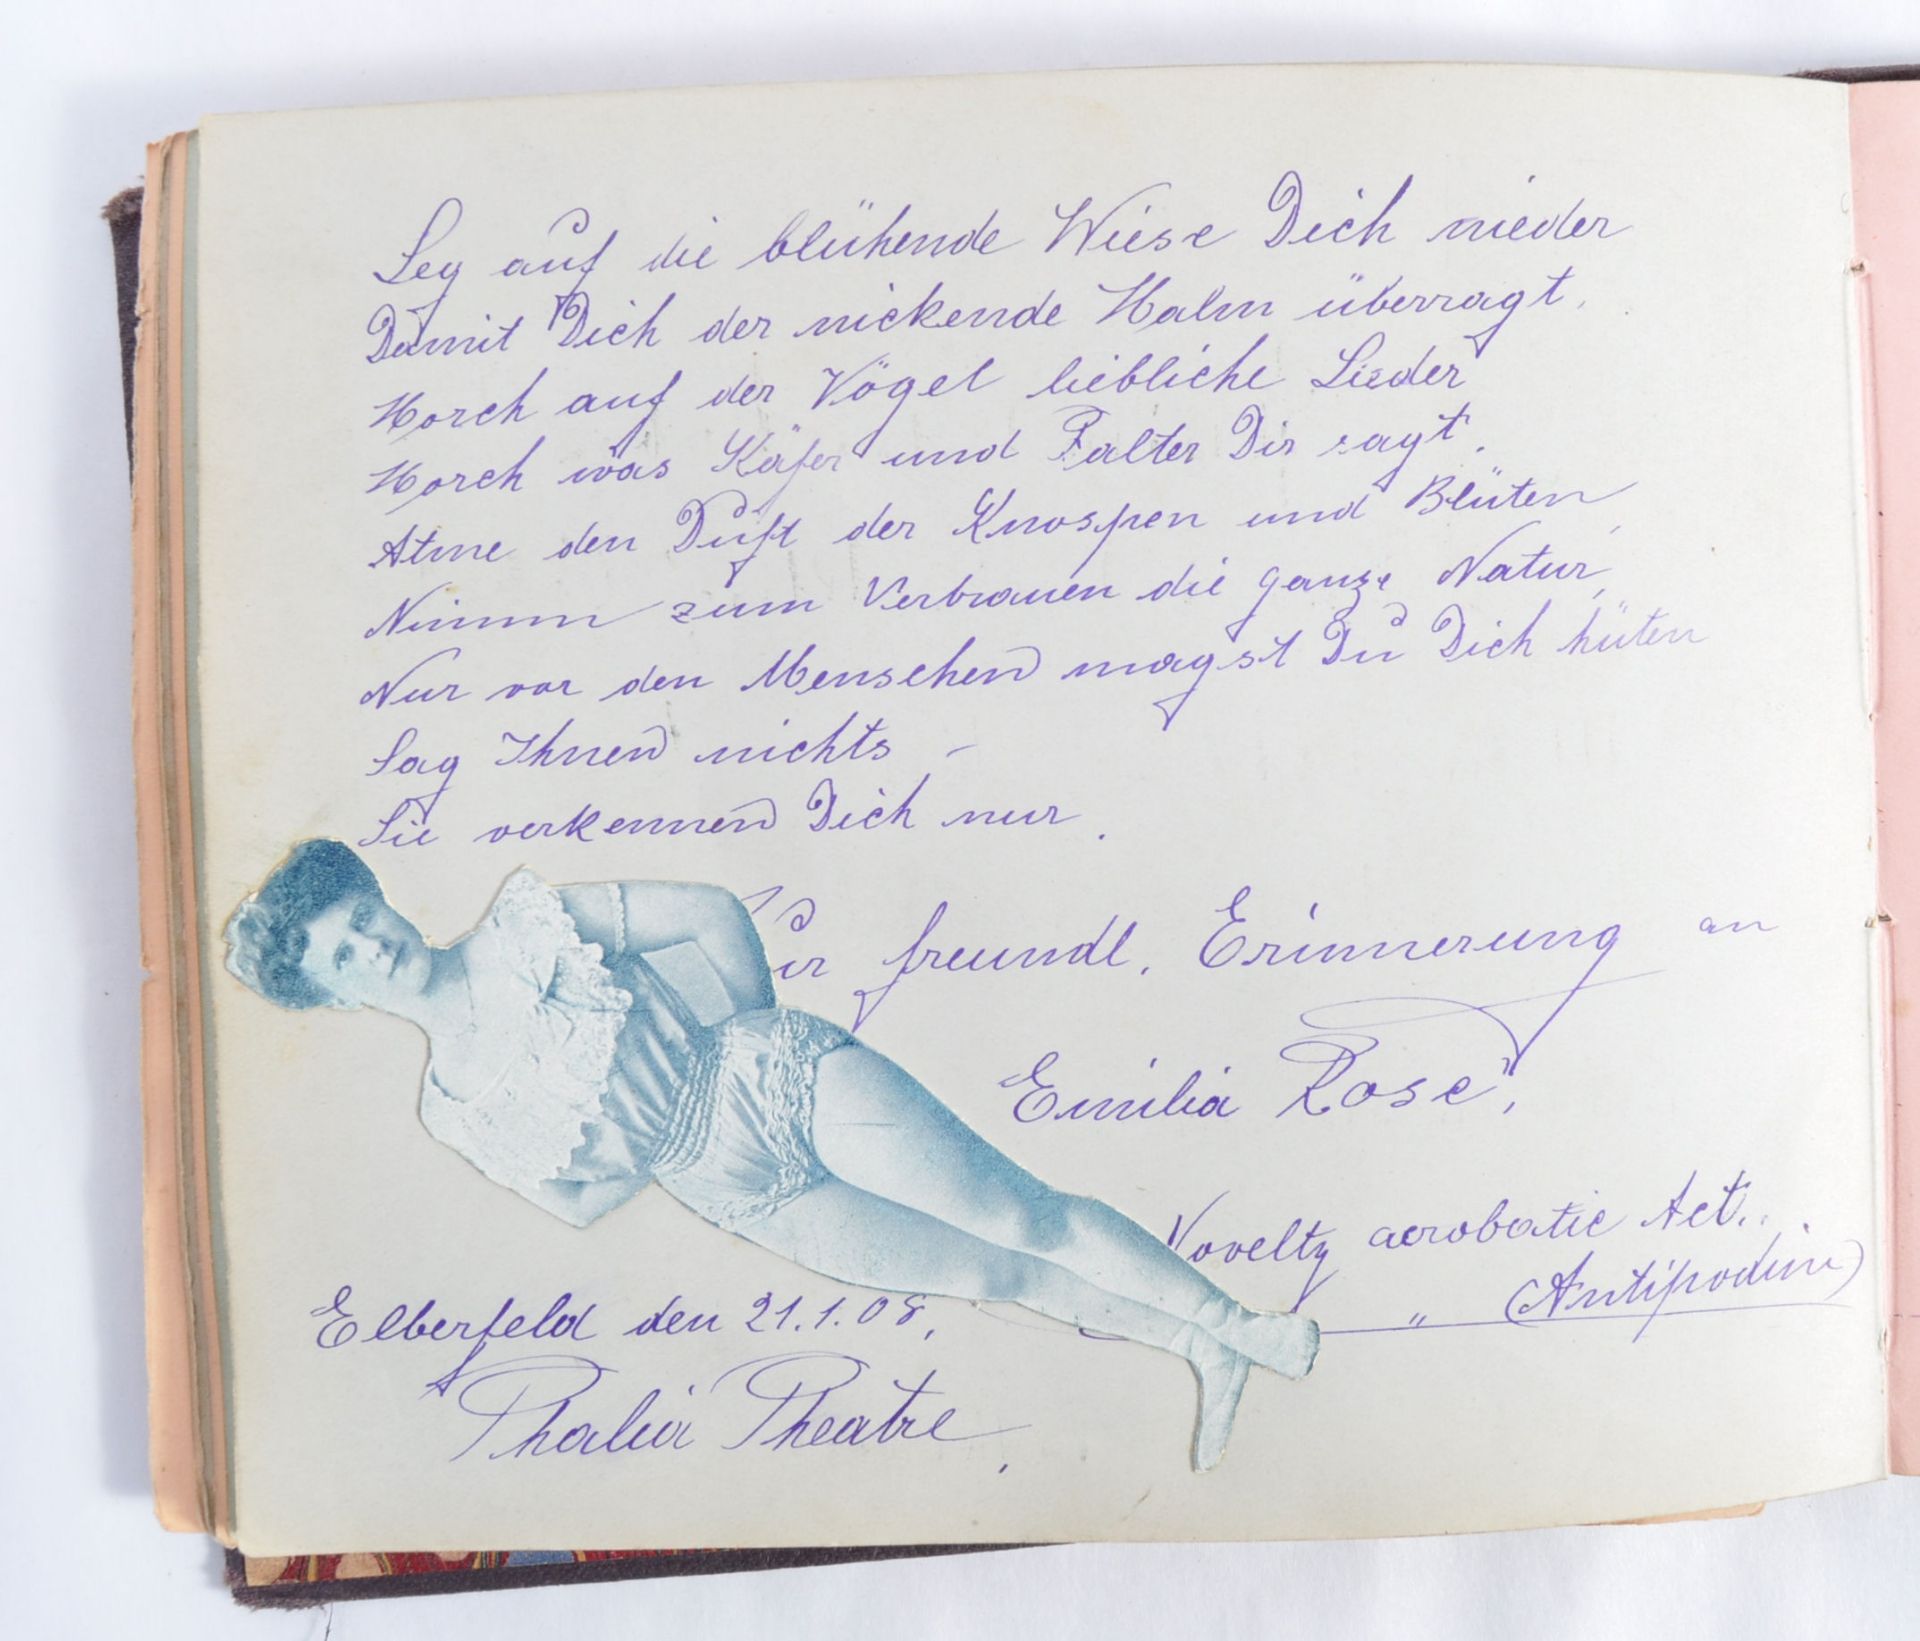 Leg auf die blühende Wiese Dich nieder
Damit Dich der nickende Halm überragt,
Horch auf der Vögel liebliche Lieder
Horch was Käfer und Falter Dir sagt.
Atme den Duft der Knospen und Blüten,
Nimm zum Vertrauen die ganze Natur,
Nur vor den Menschen magst Du Dich hüten
Sag Ihnen nichts –
Sie verkennen Dich nur.
Zur freundl. Erinnerung an
Emilia Rose,
Novelty acrobatic Act.
" (Antipodin)
Elberfeld den 21.1.08.
Thalia Theatre.